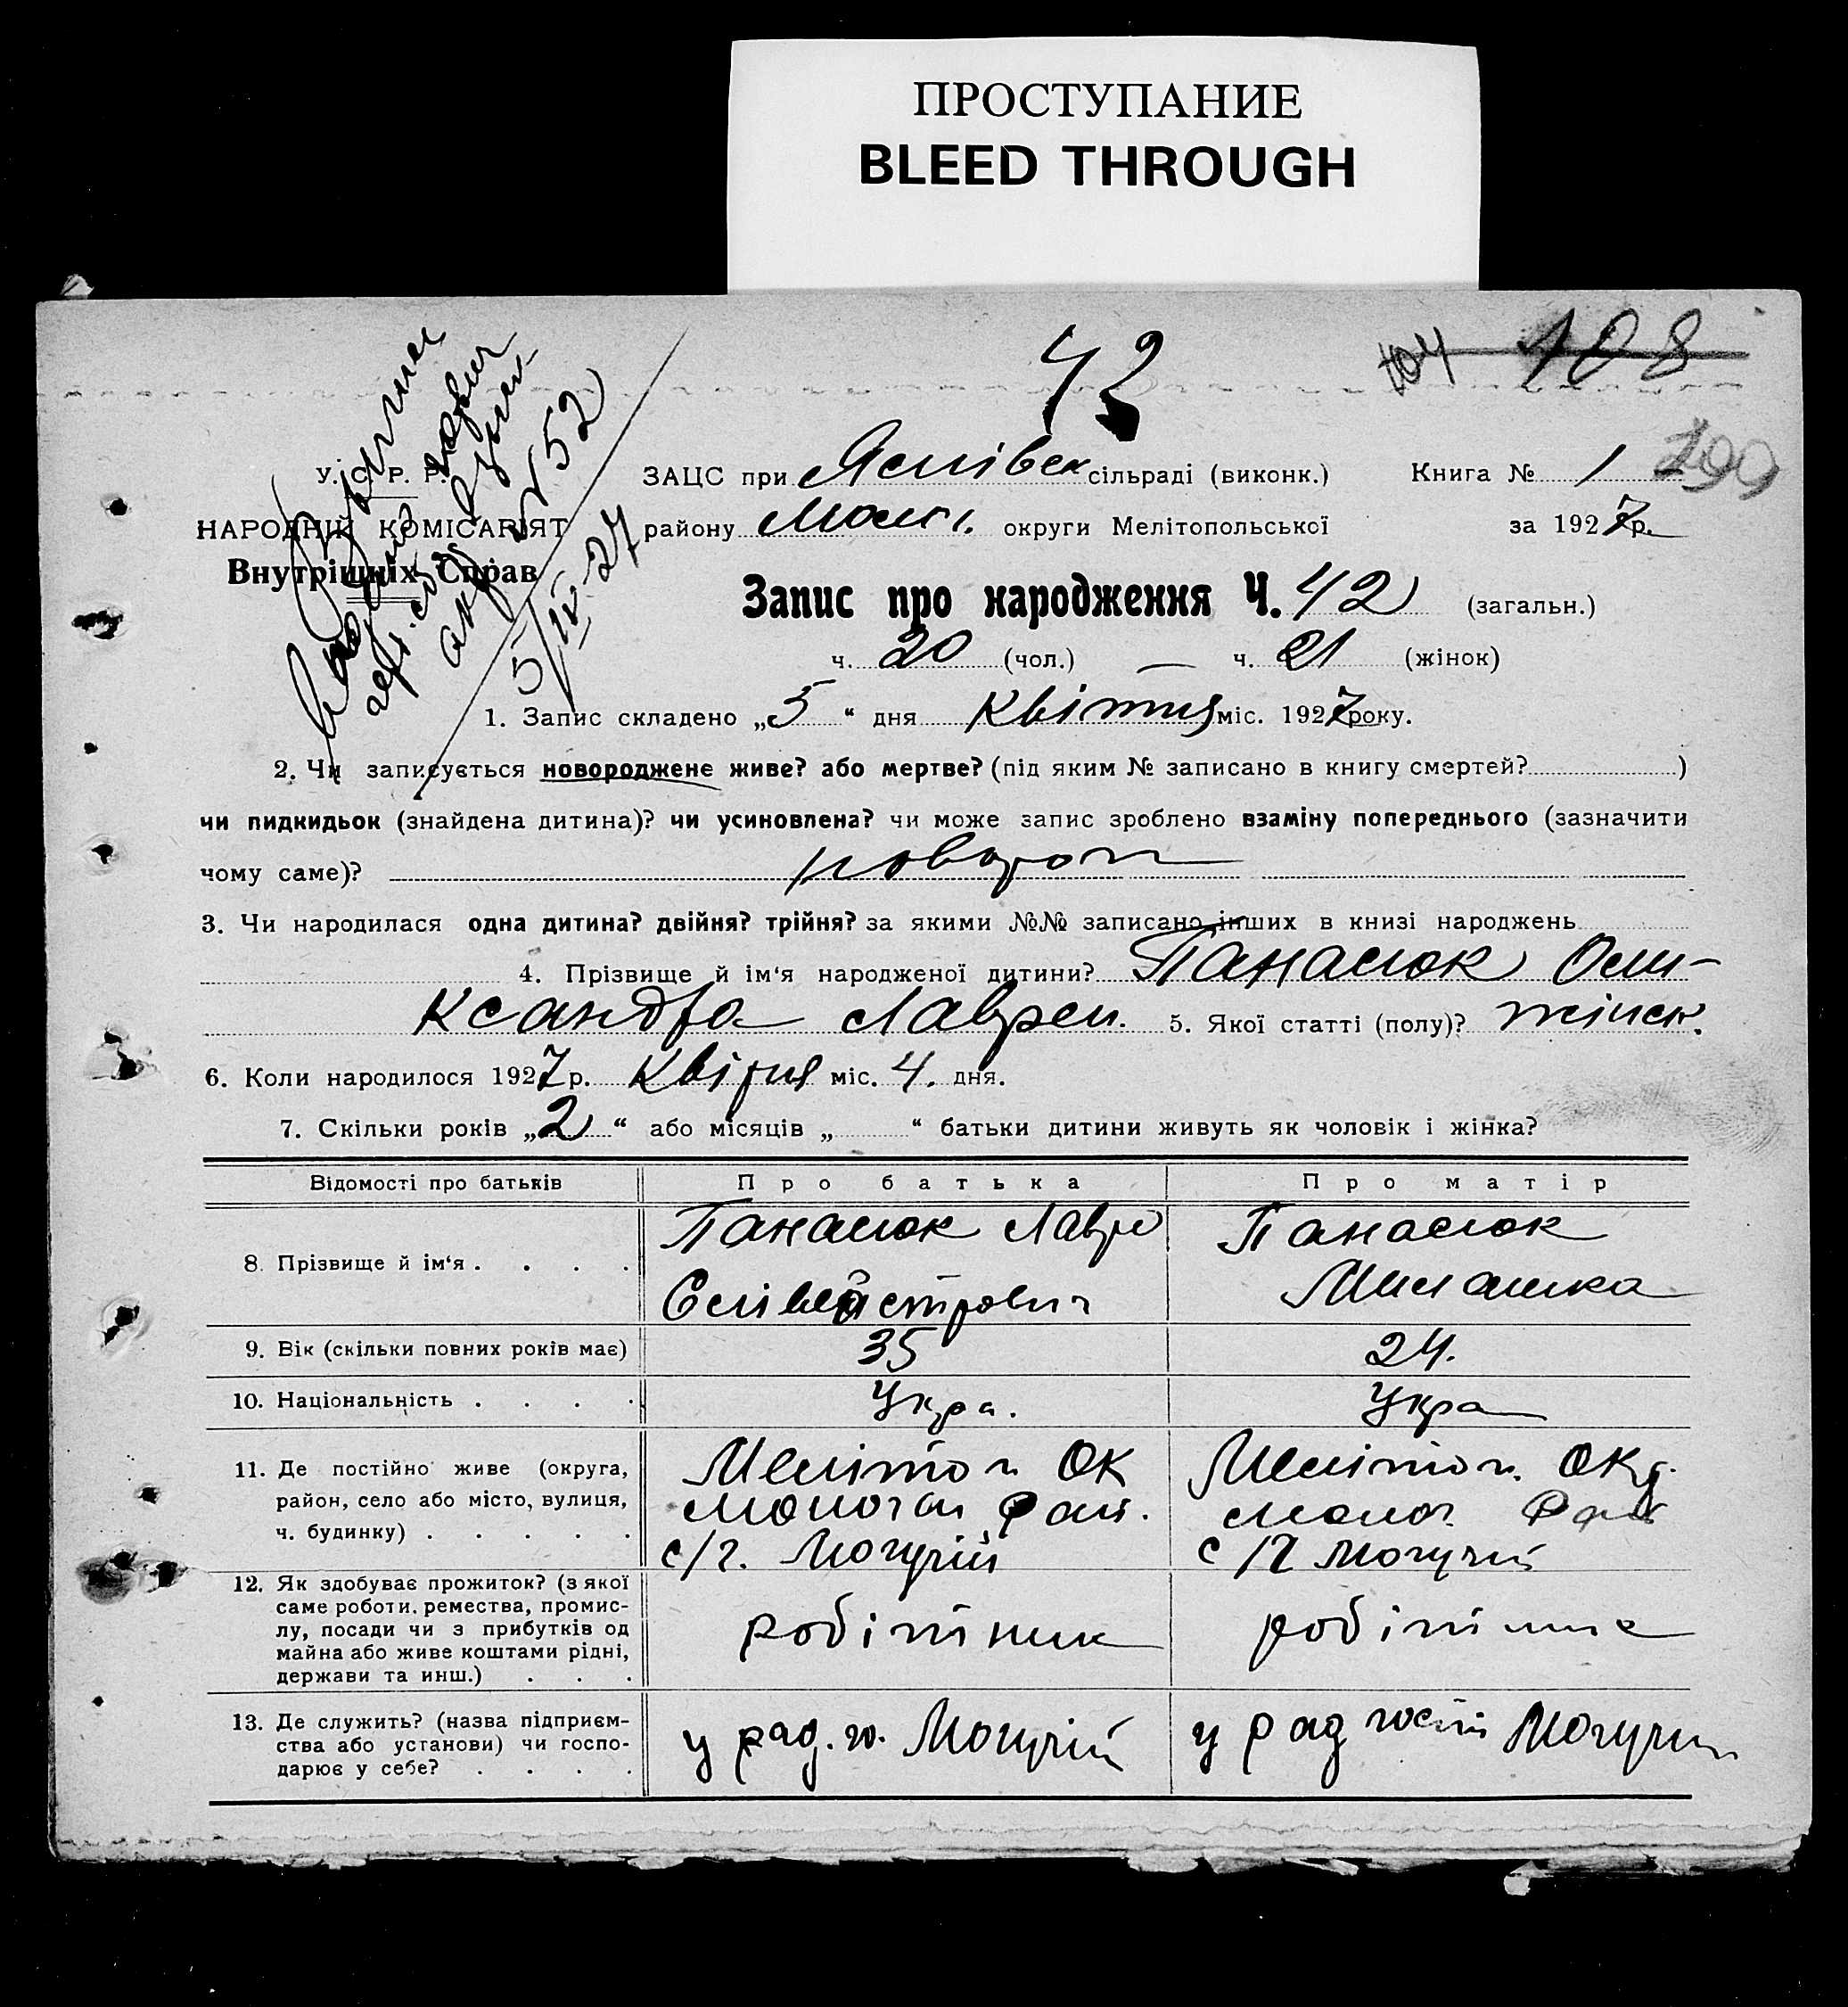 ПРОСТУПАНИЕ
BLEED THROUGH
42
104 108
199
У. С. Р. Р.
НАРОДНІЙ КОМІСАРІЯТ
Внутрішніх Справ
акт № 52
5/IV-27
ЗАЦС при сільраді (виконк.) Книга № 1
району округи Мелітопольської за 1927 р.
Запис про народження Ч. 42 (загальн.)
ч. 20 (чол.) — ч. 21 (жінок)
1. Запис складено „5“ дня Квітня міс. 1927 року.
2. Чи записується новороджене живе? або мертве? (під яким № записано в книгу смертей? )
чи пидкидьок (знайдена дитина)? чи усиновлена? чи може запис зроблено взаміну попереднього (зазначити
чому саме)? новорож
3. Чи народилася одна дитина? двійня? трійня? за якими №№ записано інших в книзі народжень
4. Прізвище й ім‘я народженої дитини? Панасюк Оле-
ксандра Лаврен. 5. Якої статті (полу)? жінск.
6. Коли народилося 1927 р. Квітня міс. 4. дня.
7. Скільки років „2“ або місяців „ “ батьки дитини живуть як чоловік і жінка?
Відомості про батьків Про батька Про матір
8. Прізвище й ім‘я . . . . Панасюк Лавро Панасюк
Селівестрович Милашка
9. Вік (скільки повних років має) 35 24.
10. Національність . . . . Укра. Укра
11. Де постійно живе (округа, Мелітоп ОК Мелітоп. Окр.
район, село або місто, вулиця, Молочан Рай. Молоч. Рай
ч. будинку) . . . . . с/г. Могучій с/г Могучий
12. Як здобуває прожиток? (з якої
саме роботи, ремества, промис-
лу, посади чи з прибутків од робітник робітниця
майна або живе коштами рідні,
держави та инш.) . . .
13. Де служить? (назва підприєм-
ства або установи) чи госпо- у рад. го. Могучій у рад госп Могучий
дарює у себе? . . . .